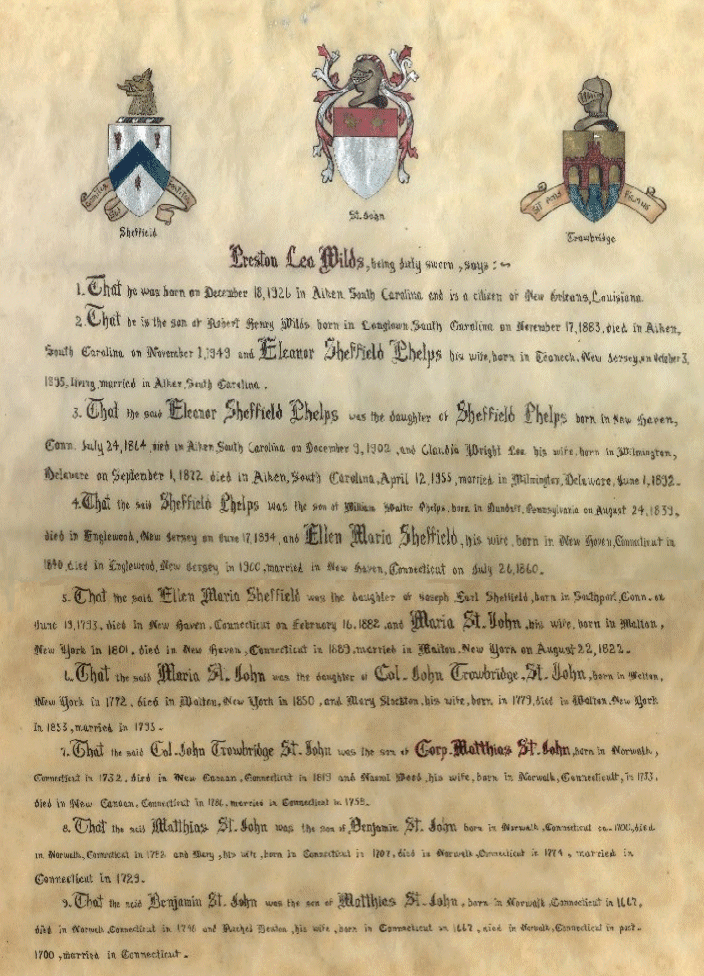 Sheffield
St. John
Trowbridge
Preston Lea Wilds, being duly sworn, says:~
1. That he was born on December 18, 1926 in Aiken, South Carolina and is a citizen of New Orleans, Louisiana.
2. That he is the son of Robert Henry Wilds, born in Longtown, South Carolina on November 17, 1883, died in Aiken,
South Carolina on November 1, 1949 and Eleanor Sheffield Phelps his wife, born in Teaneck, New Jersey, on October 3,
living, married in Aiken, South Carolina.
3. That the said Eleanor Sheffield Phelps was the daughter of Sheffield Phelps born in New Haven,
Conn. July 24, 1864, died in Aiken, South Carolina on December 9, 1902, and Claudia Wright Lea his wife, born in Wilmington,
Delaware on September 1, died in Aiken, South Carolina, April 12, 1955, married in Wilmington, Delaware, June 1, 1892.
4. That the said Sheffield Phelps was the son of William Walter Phelps, born in Dundaff, Pennsylvania on August 24, 1839,
died in Englewood, New Jersey on June 17, 1894, and Ellen Maria Sheffield, his wife, born in New Haven, Connecticut in
died in Englewood, New Jersey in 1900, married in New Haven, Connecticut on July 26, 1860.
5. That the said Ellen Maria Sheffield was the daughter of Joseph Earl Sheffield, born in Southport, Conn. on
June 19, 1793, died in New Haven, Connecticut on February 16, 1882, and Maria St. John, his wife, born in Walton,
New York in 1801, died in New Haven, Connecticut in 1889, married in Walton, New York on August 22, 1822.
6. That the said Maria St. John was the daughter of Col. John Trowbridge St. John, born in
New York in 1772, died in Walton, New York in 1850, and Mary Stockton, his wife, born in 1779, died in Walton, New York
in 1853, married in 1795.
7. That the said Col. John Trowbridge St. John was the son of Corp. Matthias St. John, born in Norwalk,
Connecticut in 1732, died in New Canaan, Connecticut in 1819 and Naomi Weed, his wife, born in Norwalk, Connecticut, in 1733,
died in New Canaan, Connecticut in married in Connecticut in
8. That the said Matthias St. John was the son of Benjamin St. John born in Norwalk, Connecticut ca. 1700, died
in Norwalk, Connecticut in 1782 and Mary, his wife, born in Connecticut in 1707, died in Norwalk, Connecticut in 1774, married in
Connecticut in 1729.
9. That the said Benjamin St. John was the son of Matthias St. John, born in Norwalk, Connecticut in 1667,
died in Norwalk, Connecticut in and Rachel his wife, born in Connecticut in 1667, died in Norwalk, Connecticut in post-
1700, married in Connecticut.